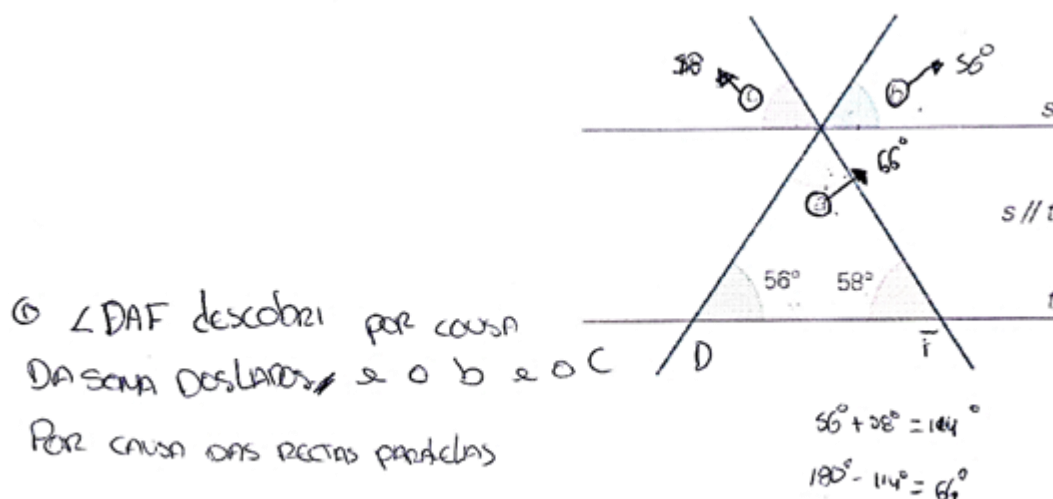 58 c b 56°
s
a 66°
s // t
56° 58°
t
D F
∠DAF descobri por causa
DA SOMA DOS LADOS, e o b e o C
POR CAUSA DAS RECTAS PARALELAS
56° + 58° = 114°
180° - 114° = 66°